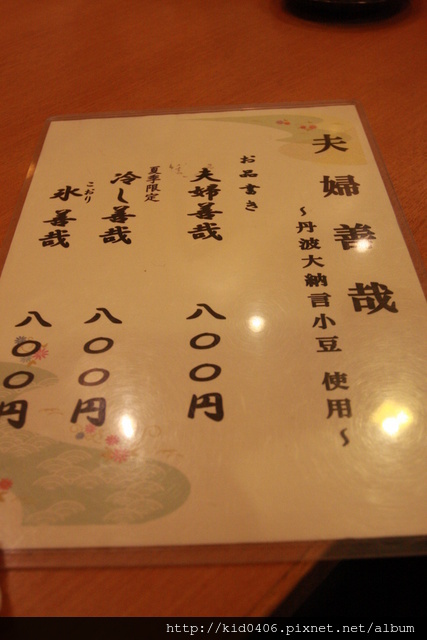 夫婦善哉
～丹波大納言小豆 使用～
お品書き
夫婦善哉 八〇〇円
夏季限定
冷し善哉 八〇〇円
こおり
氷善哉 八〇〇円
http://kid0406.pixnet.net/album